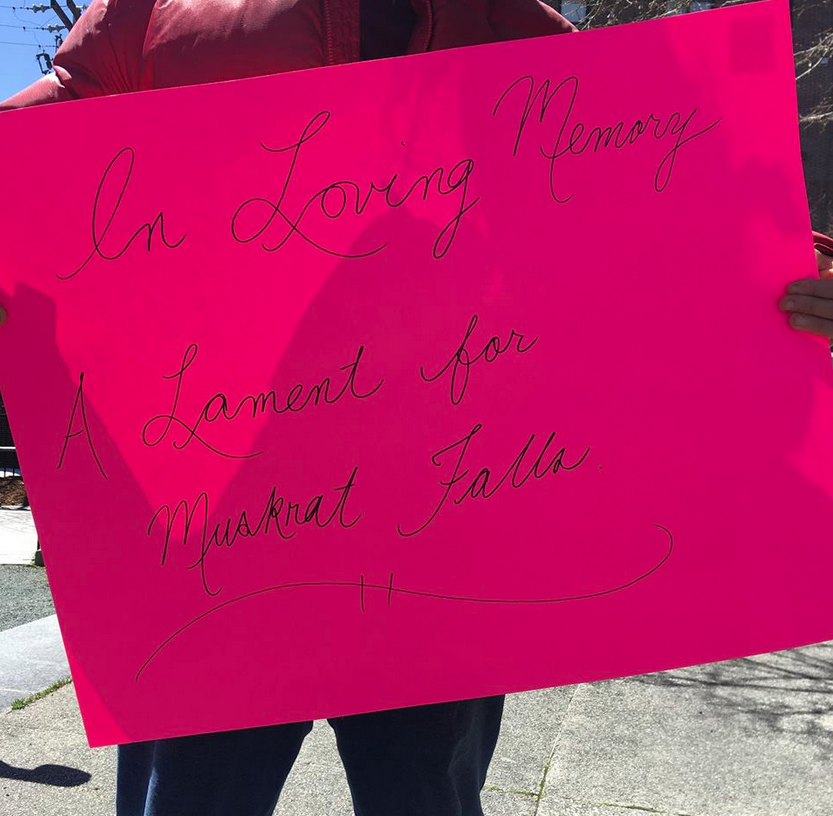 In Loving Memory
A Lament for
Muskrat Falls.